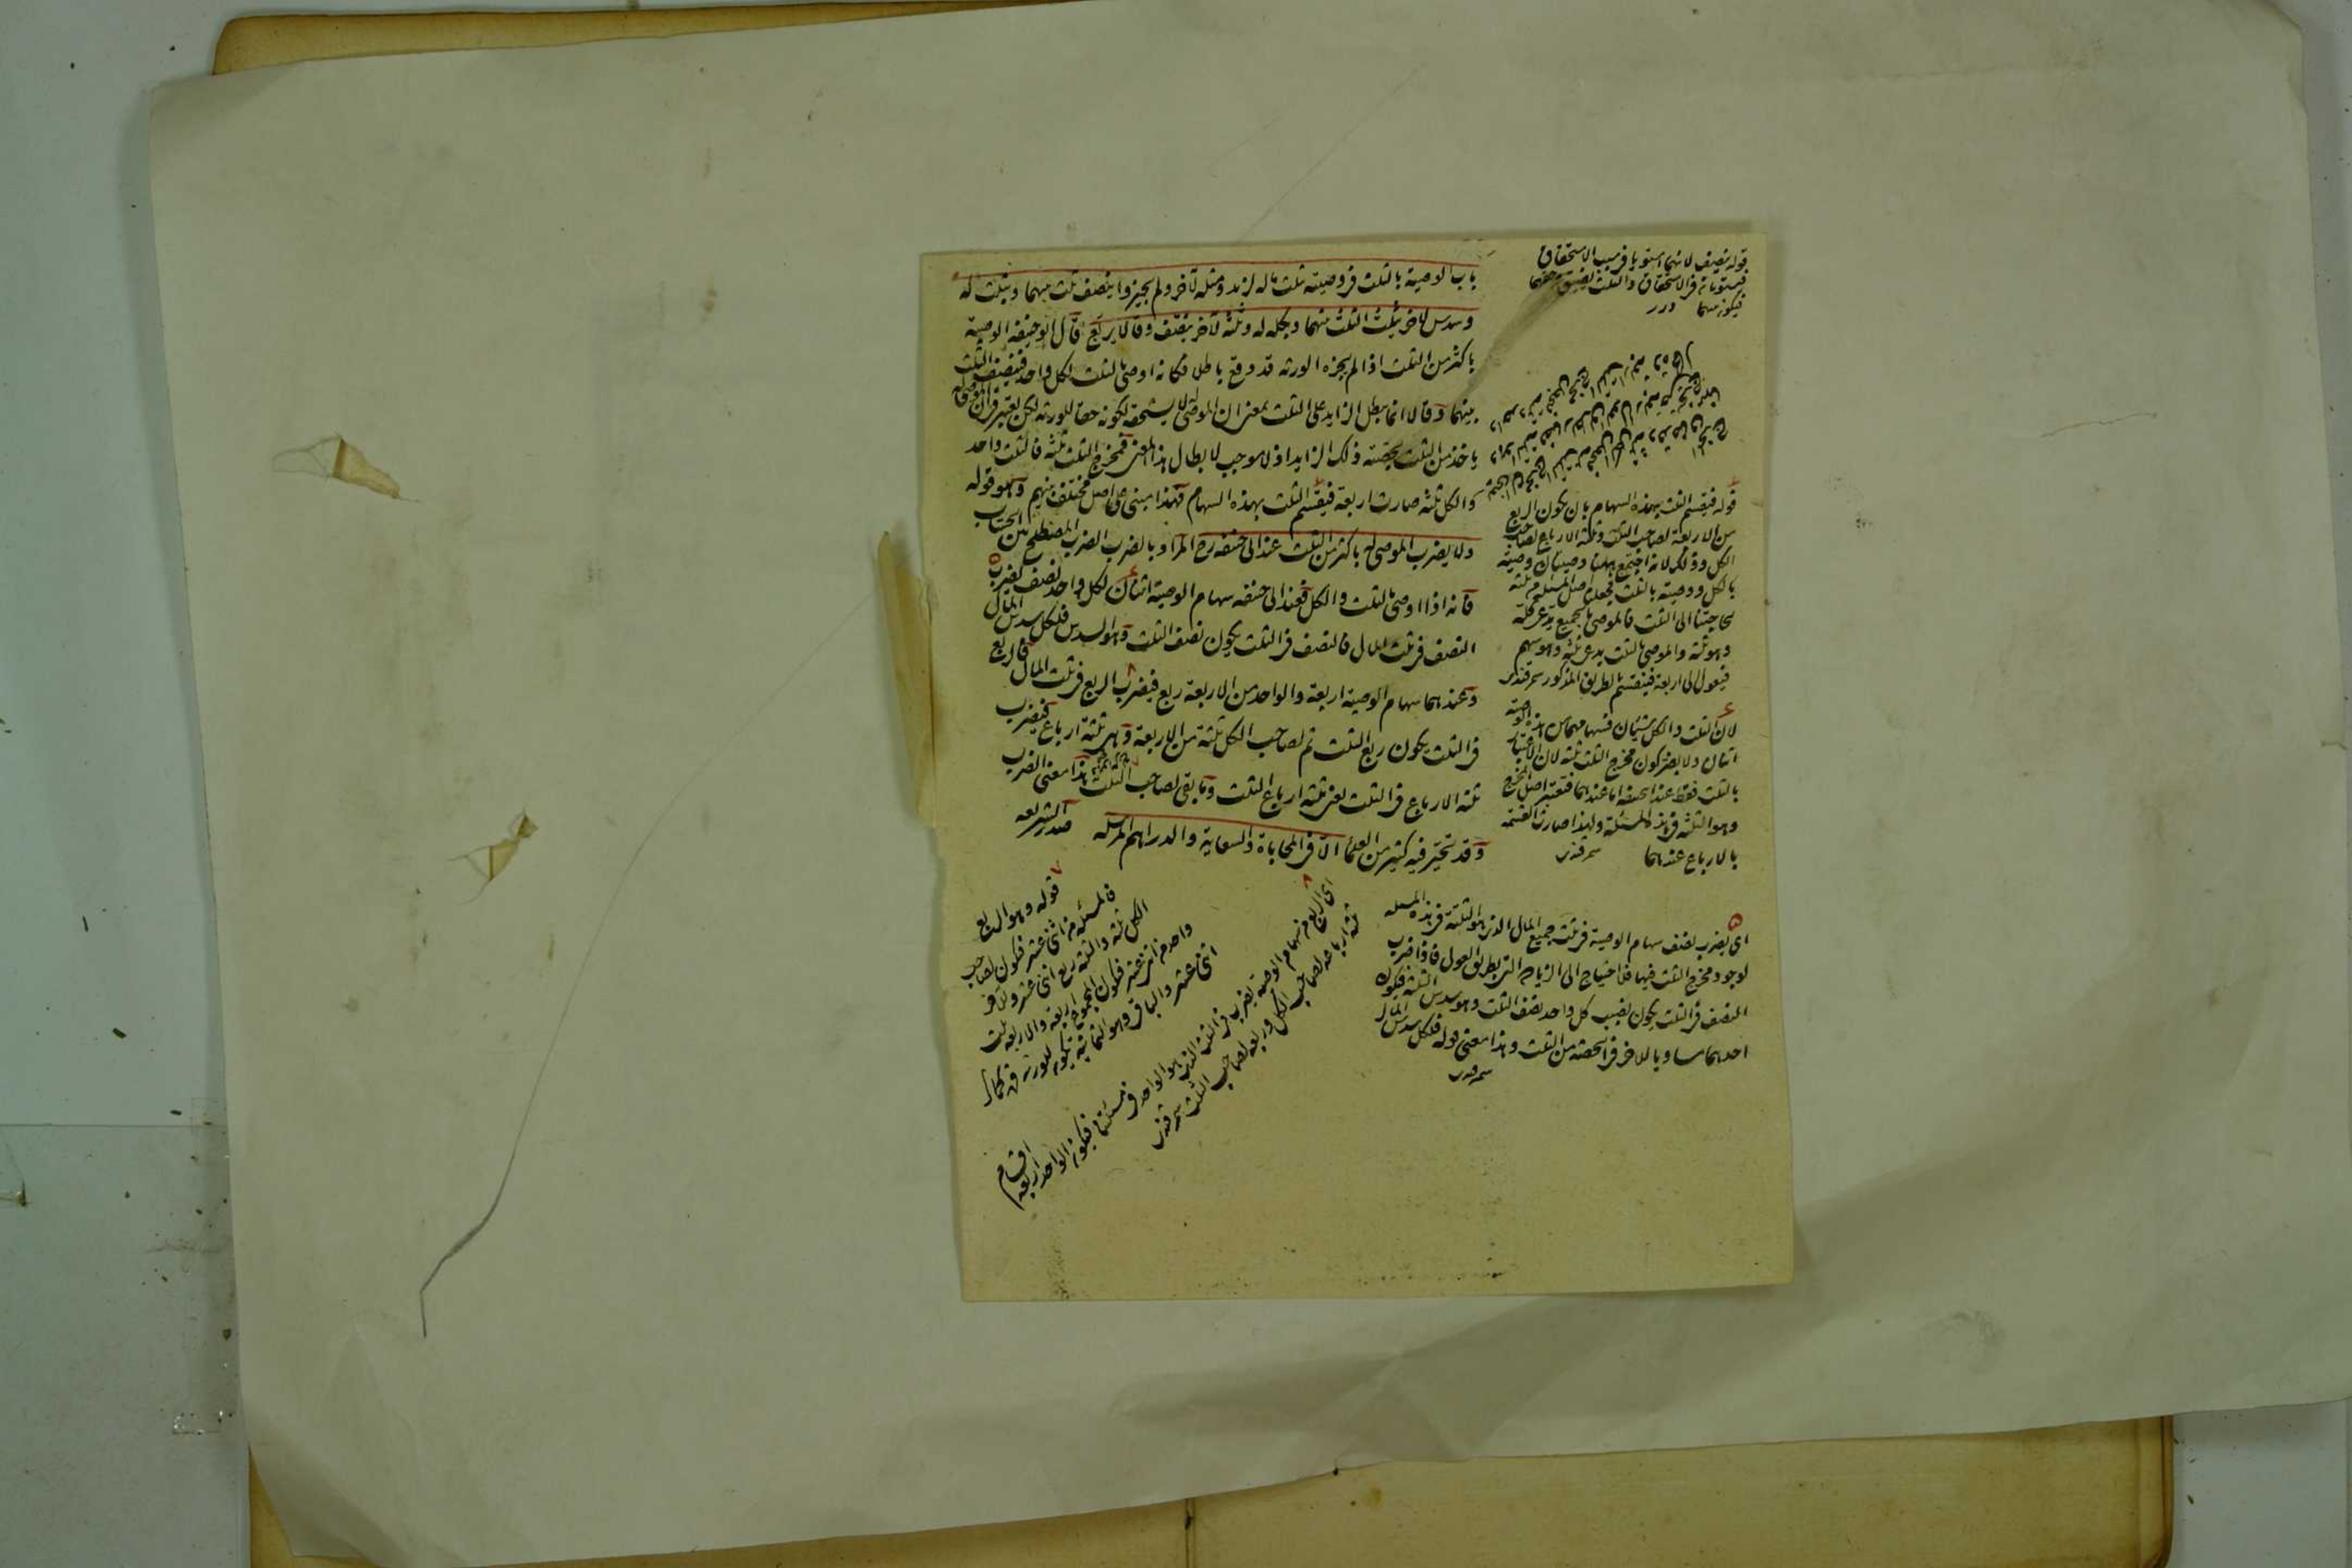 باب الوصية بالثلث فى وصيته ثلث ماله لزيد ومثله لآخر ولم يجيزوا ينصف ثلث بينهما وبثلث له
وسدس لآخر يثلث الثلث بينهما وبكله له وثلثه لآخر ينصف وقالا يربع قال ابو حنيفه الوصية
باكثر من الثلث اذا لم يجزه الورثه قد وقع باطلا فكانه اوصى بالثلث لكل واحد فينصف الثلث
بينهما وقالا انما يبطل الزايد على الثلث بمعنى ان الموصى له لا يستحقه لكونه حقا للورثه لكن يعتبر فى ان الموصى له
ياخذ من الثلث بحصته ذلك الزايد اذ لا موجب لابطال هذا المعنى فمخرج الثلث ثلثه فالثلث واحد
والكل ثلثه صارت اربعة فيقسم الثلث بهذه السهام فهذا مبنى على اصل مختلف بينهم وهو قوله
ولا يضرب الموصى له باكثر من الثلث عند ابى حنيفه رح المراد بالضرب الضرب المصطلح بين الحساب
فانه اذا اوصى بالثلث والكل فعند ابى حنيفه سهام الوصية اثنان لكل واحد نصف يضرب
النصف فى ثلث المال فالنصف فى الثلث يكون نصف الثلث وهو السدس فلكل سدس المال
وعندهما سهام الوصية اربعة والواحد من الاربعة ربع فيضرب الربع فى ثلث المال فالربع
فى الثلث يكون ربع الثلث ثم لصاحب الكل ثلثة من الاربعة وهى ثلثة ارباع فيضرب
ثلثة الارباع فى الثلث يعنى ثلثة ارباع الثلث وما بقى لصاحب الثلث هذا معنى الضرب
وقد تحير فيه كثير من العلما الا فى المحاباة والسعاية والدراهم المرسله صدر الشريعه
قوله ينصف لانهما استويا فى سبب الاستحقاق
فيستويان فى الاستحقاق والثلث يضيق عن حقهما
فيكون بينهما درر
قوله فيقسم الثلث بهذه السهام بان يكون الربع
من الاربعة لصاحب الثلث وثلثة الارباع لصاحب
الكل وذلك لانه اجتمع ههنا وصيتان وصية
بالكل ووصية بالثلث فجعلنا اصل المسئلة من ثلثه
لحاجتنا الى الثلث فالموصى له بالجميع يدعى كله
وهو ثلثه والموصى له بالثلث يدعى ثلثه وهو سهم
فيعول الى اربعة فينقسم بالطريق المذكور سمرقندى
لان الثلث والكل شيئان فسهامهما من هذه الوصية
اثنان ولا يضر كون مخرج الثلث ثلثه لان الاعتبار
بالثلث فقط عند ابى حنيفه اما عندهما فتعتبر اصل المخرج
وهو الثلثه فى هذه المسئلة ولهذا صارت القسمة
بالارباع عندهما سمرقندى
اى يضرب نصف سهام الوصية فى ثلث جميع المال الذى هو الثلثة فى هذه المسئله
لوجود مخرج الثلث فيها فلا احتياج الى الزيادة التى بطريق العول فاذا ضرب
النصف فى الثلث يكون نصيب كل واحد نصف الثلث وهو سدس الثلثه فيكون
احدهما مساويا للاخر فى الحصة من الثلث وهذا معنى قوله فلكل سدس المال
سمرقندى
قوله وهو الربع
فالمسئله من اثنى عشر فيكون لصاحب
الكل ثلثه والثلثه ربع اثنى عشر وللاخر
واحد من اثنى عشر فيكون المجموع اربعة والاربعه ثلث
اثنى عشر والباقى وهو الثمانيه يكون للورثه
اى الربع من سهام الوصية يضرب فى الثلث الذى هو الواحد فى مسئلتنا فيكون الواحد اربعة اقسام
ثلثة ارباعه لصاحب الكل وربعه لصاحب الثلث سمرقندى